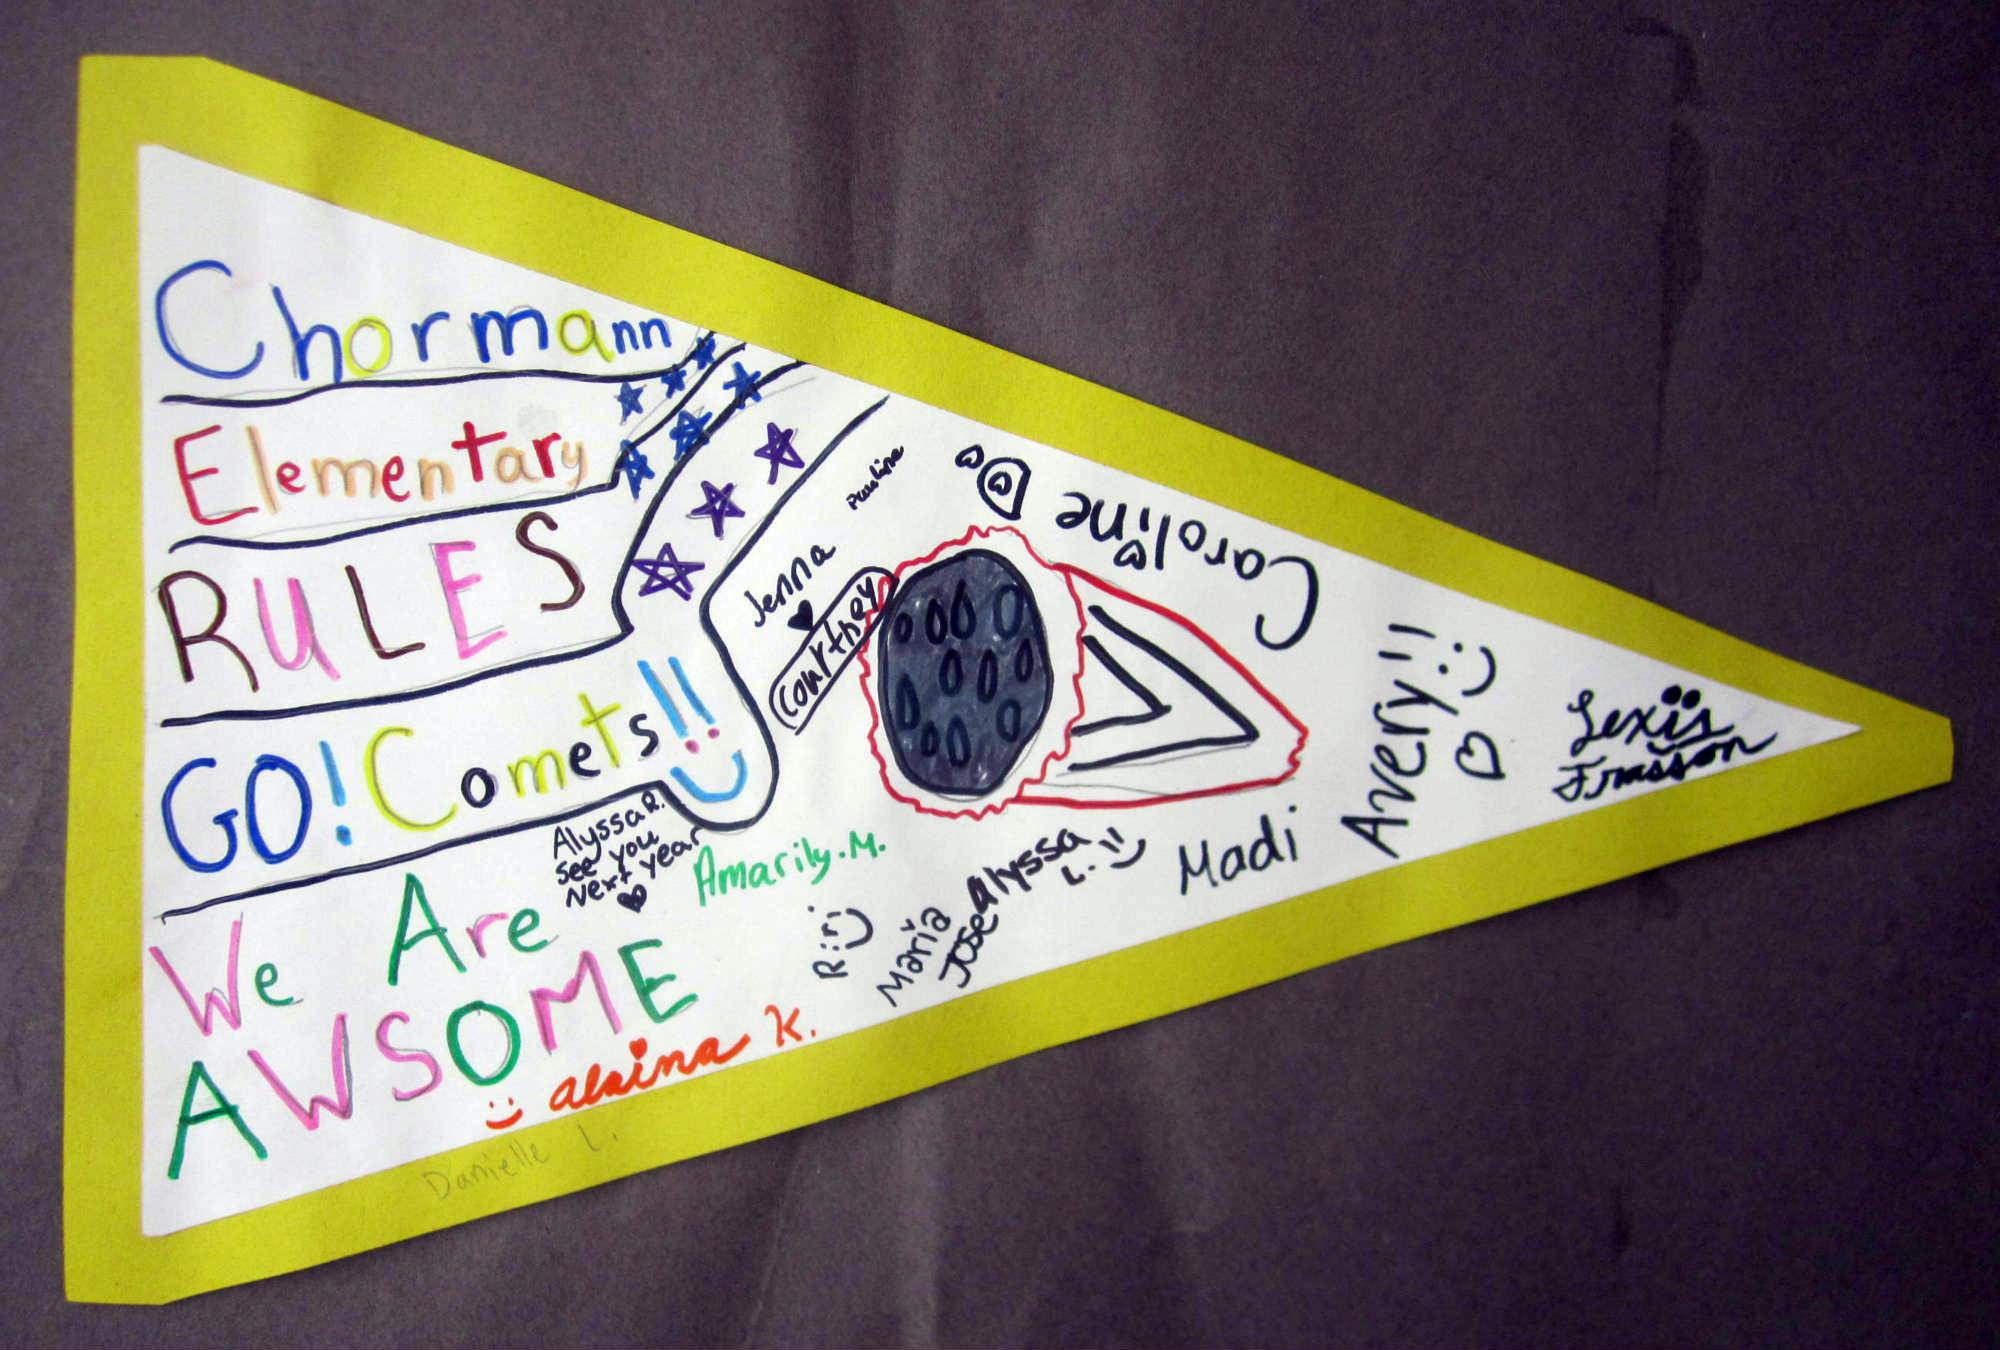 Chormann
Elementary
RULES
GO! Comets!!
We Are
AWSOME
Alyssa R.
See you
Next year
Amarily.M.
Pauline
Jenna
Courtney
Caroline B
Avery!!
Lexis
Frasson
Madi
Alyssa
L.
Maria
Jose
Riri
alaina K.
Danielle L.